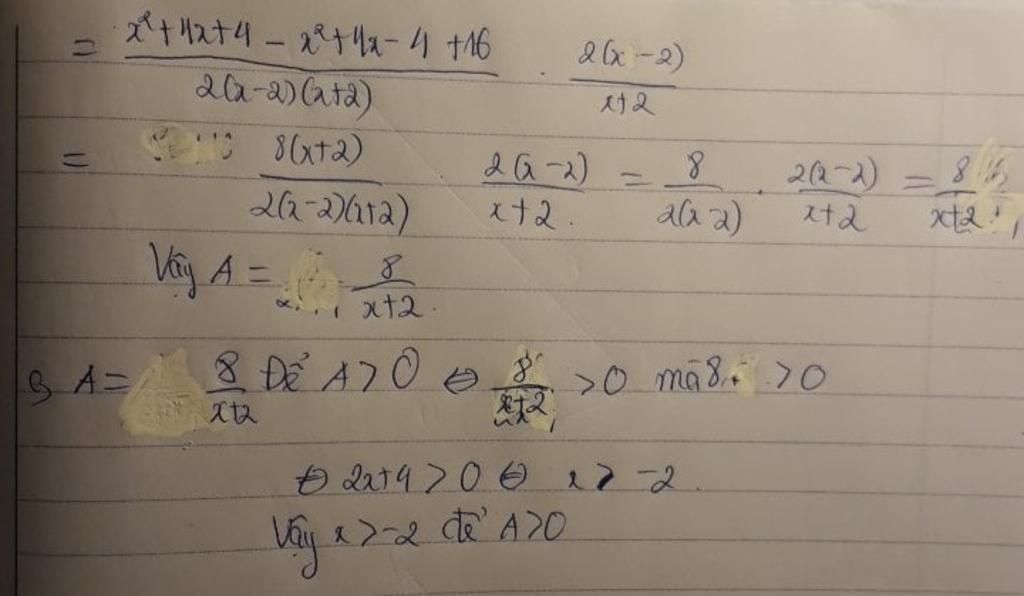 = (x²+4x+4 − x²+4x−4 +16)/(2(x−2)(x+2)) · 2(x−2)/(x+2)
= 8(x+2)/(2(x−2)(x+2)) · 2(x−2)/(x+2) = 8/(2(x−2)) · 2(x−2)/(x+2) = 8/(x+2)
Vậy A = 8/(x+2).
A = 8/(x+2) Để A > 0 ⇔ 8/(x+2) > 0 mà 8 > 0
⇔ 2x+4 > 0 ⇔ x > −2.
Vậy x > −2 để A > 0